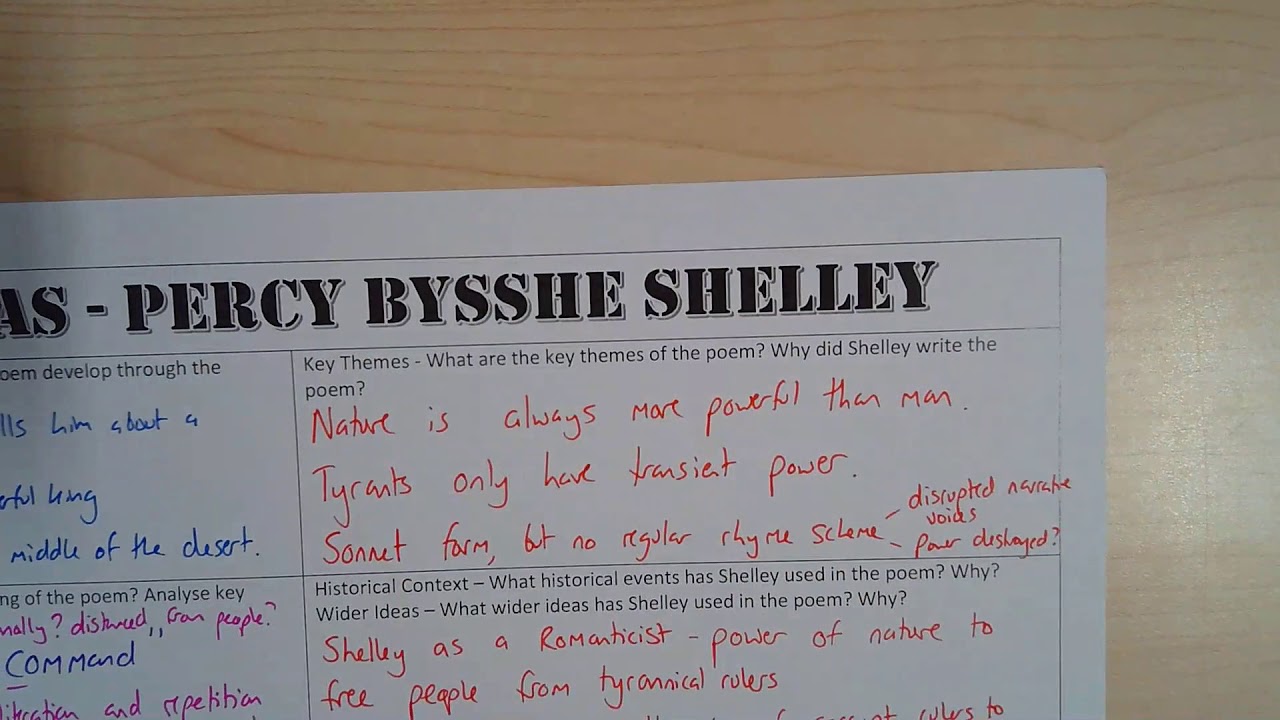 AS - PERCY BYSSHE SHELLEY
oem develop through the
lls him about a
rful king
middle of the desert.
Key Themes - What are the key themes of the poem? Why did Shelley write the
poem?
Nature is always more powerful than man.
Tyrants only have transient power.
Sonnet form, but no regular rhyme scheme
disrupted narrative
voices
power destroyed?
ng of the poem? Analyse key
nally? distanced from people?
Command
literation and repetition
Historical Context – What historical events has Shelley used in the poem? Why?
Wider Ideas – What wider ideas has Shelley used in the poem? Why?
Shelley as a Romanticist - power of nature to
free people from tyrannical rulers
rulers to